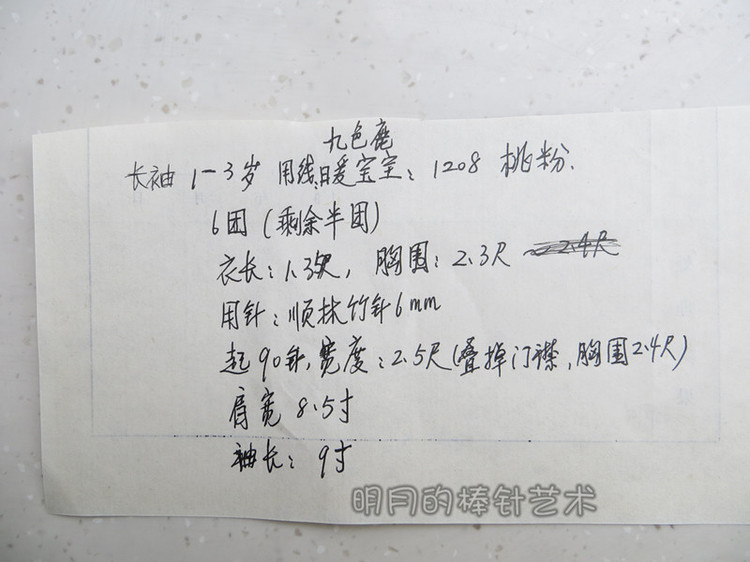 九色鹿
长袖 1-3岁 用线:暖宝宝:1208 桃粉.
6团(剩余半团)
衣长:1.3尺,胸围:2.3尺 2.4尺
用针:顺抹竹针6mm
起90针,宽度:2.5尺(叠掉门襟,胸围2.4尺)
肩宽 8.5寸
袖长:9寸
明月的棒针艺术